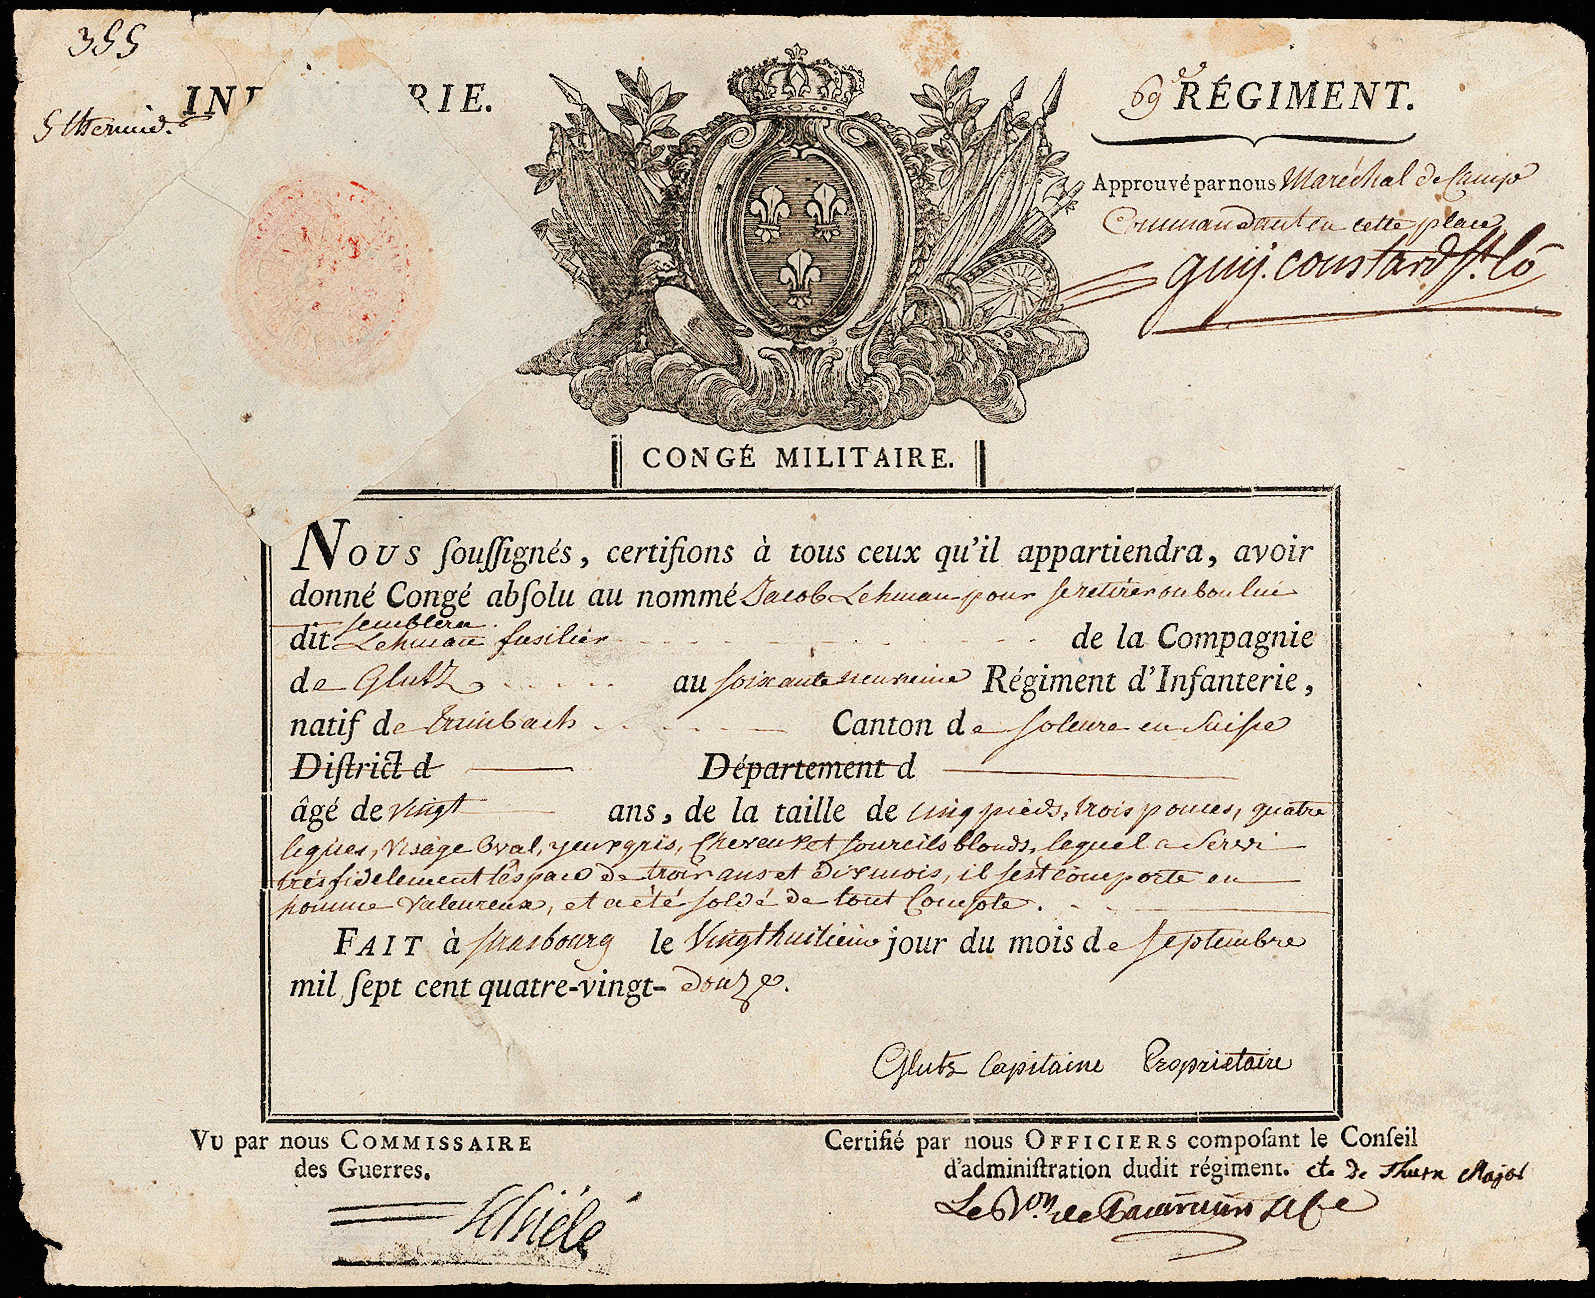 355
5 thermid.
IN RIE.
69 RÉGIMENT.
Approuvé par nous Maréchal de Camp
Commandant en cette place
guy. coustard St. Lô
CONGÉ MILITAIRE.
Nous ſouſſignés, certifions à tous ceux qu'il appartiendra, avoir
donné Congé abſolu au nommé Jacob Lehman pour se retirer ou bon lui
semblera.
dit Lehman fusilier de la Compagnie
de Glutz au soixante neuvieme Régiment d'Infanterie,
natif de trimbach Canton de soleure en Suisse
Diſtrict d Département d
âgé de vingt ans, de la taille de cinq pieds, trois pouces, quatre
lignes, visage oval, yeux gris, cheveux et sourcils blonds, lequel a servi
très fidelement l'espace de trois ans et dix mois, il s'est comporté en
homme valeureux, et a été soldé de tout compte.
FAIT à strasbourg le vingt huitieme jour du mois de septembre
mil ſept cent quatre-vingt- douze.
Glutz Capitaine Proprietaire
VU par nous COMMISSAIRE
des Guerres.
Certifié par nous OFFICIERS compoſant le Conſeil
d'adminiſtration dudit régiment. cte de Thurn Major
Thiélé
Le Bon. de